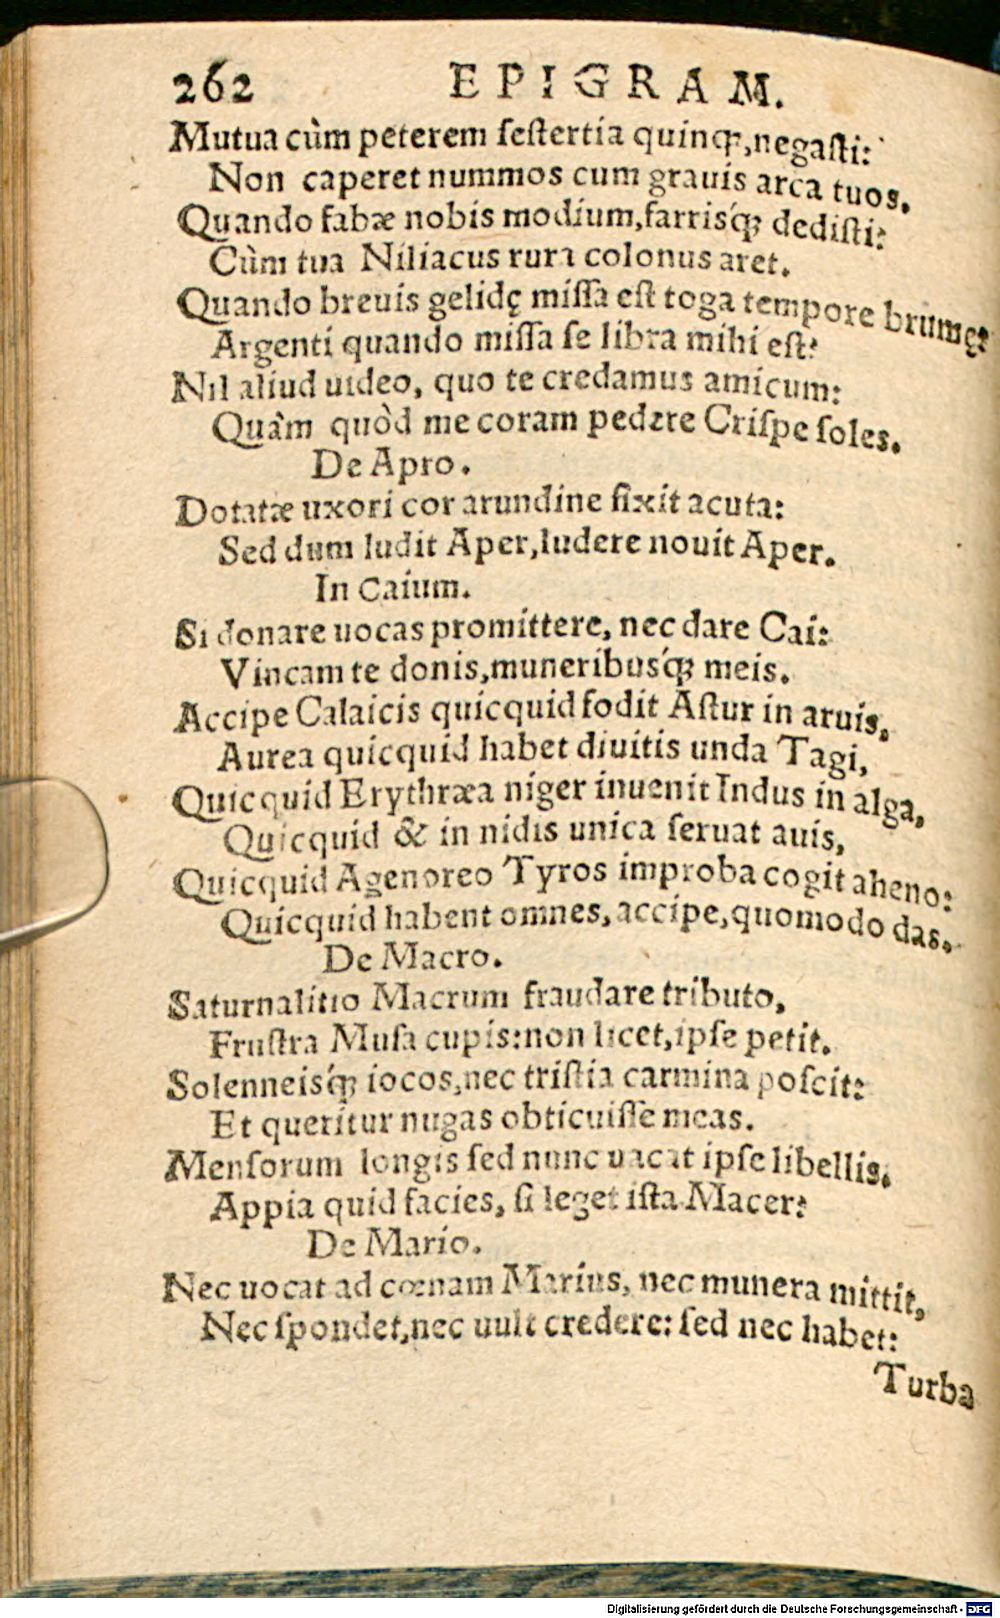 262 EPIGRAM.
Mutua cùm peterem sestertia quinq;, negasti:
Non caperet nummos cum grauis arca tuos.
Quando fabæ nobis modium, farrisq́; dedisti?
Cùm tua Niliacus rura colonus aret.
Quando breuis gelidę missa est toga tempore brumę?
Argenti quando missa se libra mihi est?
Nil aliud uideo, quo te credamus amicum:
Quàm quòd me coram pedere Crispe soles.
De Apro.
Dotatæ uxori cor arundine fixit acuta:
Sed dum ludit Aper, ludere nouit Aper.
In Caium.
Si donare uocas promittere, nec dare Cai:
Vincam te donis, muneribusq́; meis.
Accipe Calaicis quicquid fodit Astur in aruis,
Aurea quicquid habet diuitis unda Tagi,
Quicquid Erythræa niger inuenit Indus in alga,
Quicquid & in nidis unica seruat auis,
Quicquid Agenoreo Tyros improba cogit aheno:
Quicquid habent omnes, accipe, quomodo das.
De Macro.
Saturnalitio Macrum fraudare tributo,
Frustra Musa cupis: non licet, ipse petit.
Solenneisq́; iocos, nec tristia carmina poscit:
Et queritur nugas obticuisse meas.
Mensorum longis sed nunc uacat ipse libellis.
Appia quid facies, si leget ista Macer?
De Mario.
Nec uocat ad cœnam Marius, nec munera mittit,
Nec spondet, nec uult credere: sed nec habet:
Turba
Digitalisierung gefördert durch die Deutsche Forschungsgemeinschaft - DFG